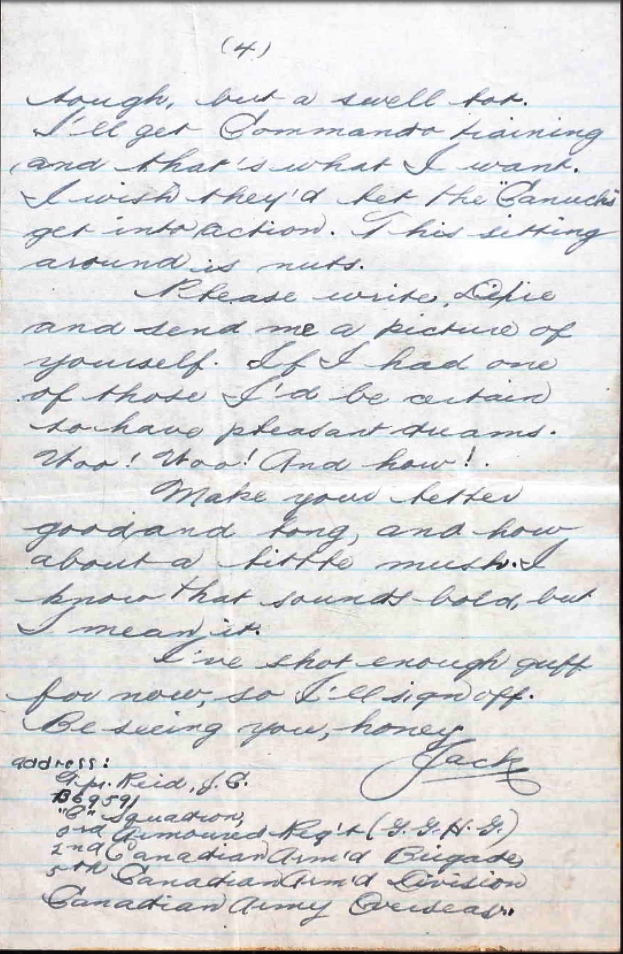 (4)
tough, but a swell lot.
I'll get Commando training
and that's what I want.
I wish they'd let the "Canucks"
get into action. This sitting
around is nuts.
Please write,
and send me a picture of
yourself. If I had one
of those I'd be certain
to have pleasant dreams.
Woo! Woo! And how!.
Make your letter
good and long, and how
about a little mush. I
know that sounds bold, but
I mean it.
I've shot enough guff
for now, so I'll sign off.
Be seeing you, honey
Jack
address:
Reid, J.C.
B69591
"C" Squadron,
3rd Armoured Reg't (G.G.H.G.)
2nd Canadian Arm'd Brigade,
5th Canadian Arm'd Division
Canadian Army Overseas.